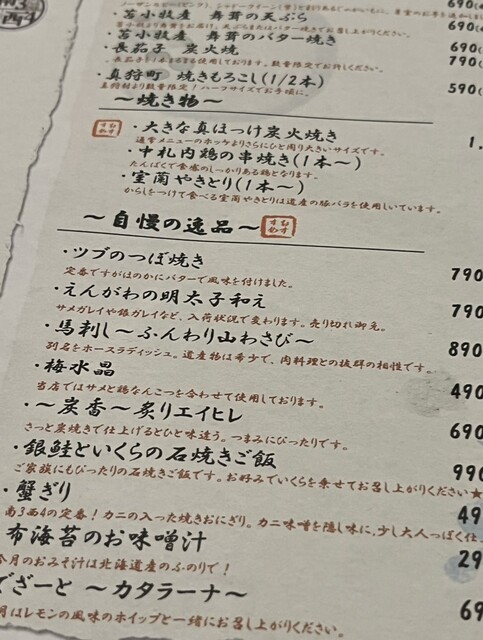 ・苫小牧産 舞茸の天ぷら
・苫小牧産 舞茸のバター焼き
・長茄子 炭火焼 690
790
・真狩町 焼きもろこし(1/2本) 590
真狩村より数量限定！ハーフサイズでお手頃に。
〜焼き物〜
おすすめ ・大きな真ほっけ炭火焼き 1,
通常メニューのホッケよりさらにひと周り大きいサイズです。
・中札内鶏の串焼き(1本〜)
たんぱくで食感のしっかりある鶏となります。
・室蘭やきとり(1本〜)
からしをつけて食べる室蘭やきとりは道産の豚バラを使用しいています。
〜自慢の逸品〜 おすすめ
・ツブのつぼ焼き 790
定番ですがほのかにバターで風味を付けました。
・えんがわの明太子和え 790
サメガレイや銀ガレイなど、入荷状況で変わります。売り切れ御免。
・馬刺し〜ふんわり山わさび〜 890
別名をホースラディッシュ。道産物は希少で、肉料理との抜群の相性です。
・梅水晶 490
当店ではサメと鶏なんこつを合わせて使用しております。
・〜炭香〜炙りエイヒレ 690
さっと炭焼きで仕上げるとひと味違う。つまみにぴったりです。
・銀鮭といくらの石焼きご飯 990
ご家族にもぴったりの石焼きご飯です。お好みでいくらを乗せてお召し上がりください★
・蟹ぎり 49
南3西4の定番！カニの入った焼きおにぎり。カニ味噌を隠し味に、少し大人っぽく仕
布海苔のお味噌汁 29
今月のおみそ汁は北海道産のふのりで！
でざーと 〜カタラーナ〜 69
月はレモンの風味のホイップと一緒にお召し上がりください。